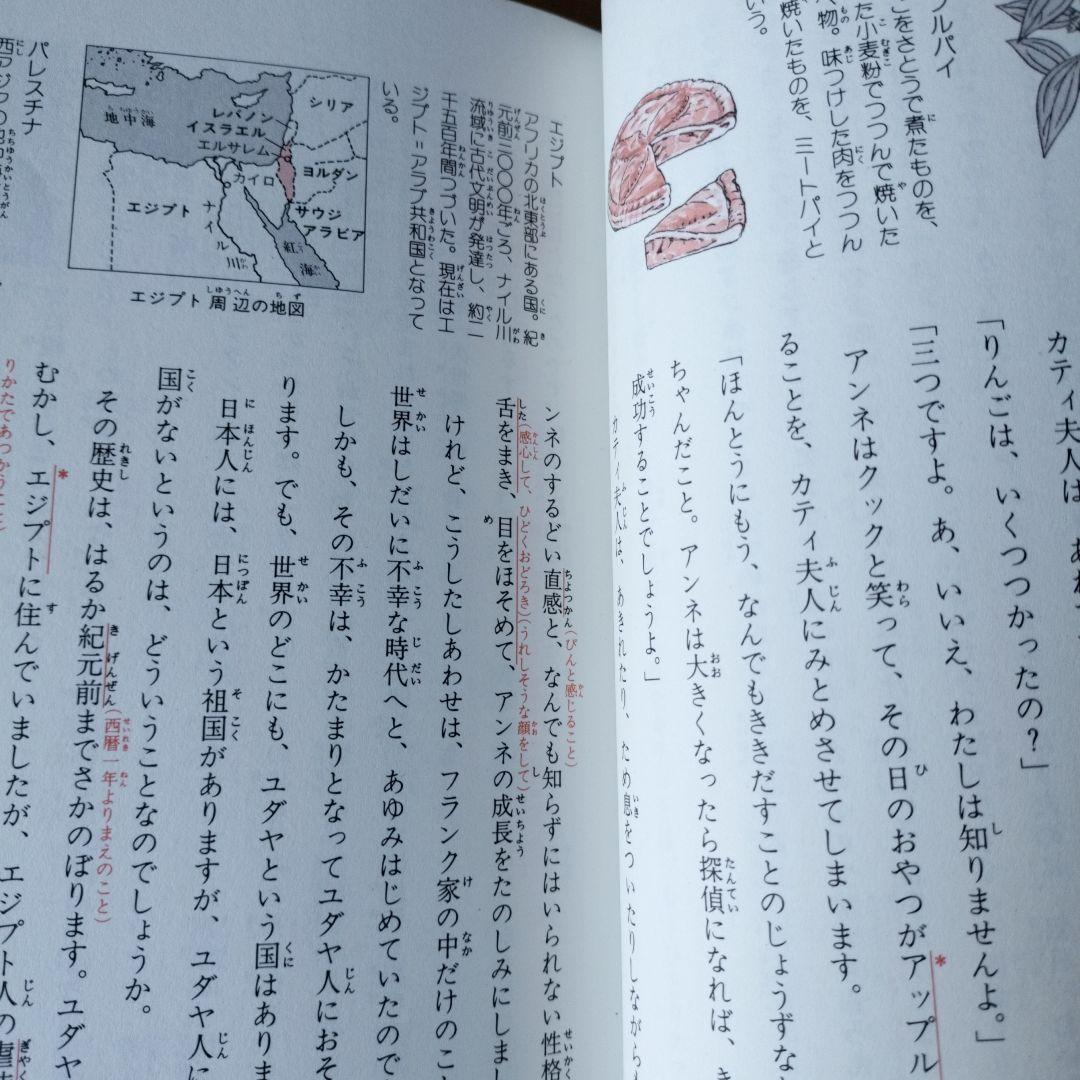 プルパイ
こをさとうで煮たものを、
た小麦粉でつつんで焼いた
物。味つけした肉をつつん
焼いたものを、ミートパイと
いう。
カティ夫人は、あ
「りんごは、いくつつかったの？」
「三つですよ。あ、いいえ、わたしは知りませんよ。」
アンネはクックと笑って、その日のおやつがアップル
ることを、カティ夫人にみとめさせてしまいます。
「ほんとうにもう、なんでもききだすことのじょうずな
ちゃんだこと。アンネは大きくなったら探偵になれば、
成功することでしょうよ。」
カティ夫人は、あきれたり、ため息をついたりしながらも
エジプト
アフリカの北東部にある国。紀
元前三〇〇〇年ごろ、ナイル川
流域に古代文明が発達し、約二
千五百年間つづいた。現在はエ
ジプト＝アラブ共和国となって
いる。
シリア
レバノン
地中海
イスラエル
エルサレム
ヨルダン
カイロ
エジプト
サウジ
アラビア
ナイル川
紅海
エジプト周辺の地図
パレスチナ
ンネのするどい直感と、なんでも知らずにはいられない性格
（ぴんと感じること）
舌をまき、目をほそめて、アンネの成長をたのしみにしま
（感心して、ひどくおどろき）（うれしそうな顔をして）
けれど、こうしたしあわせは、フランク家の中だけのこ
世界はしだいに不幸な時代へと、あゆみはじめていたので
しかも、その不幸は、かたまりとなってユダヤ人におそ
ります。でも、世界のどこにも、ユダヤという国はありま
日本人には、日本という祖国がありますが、ユダヤ人に
国がないというのは、どういうことなのでしょうか。
その歴史は、はるか紀元前までさかのぼります。ユダヤ
（西暦一年よりまえのこと）
むかし、エジプトに住んでいましたが、エジプト人の虐
りかたであつかうこと）